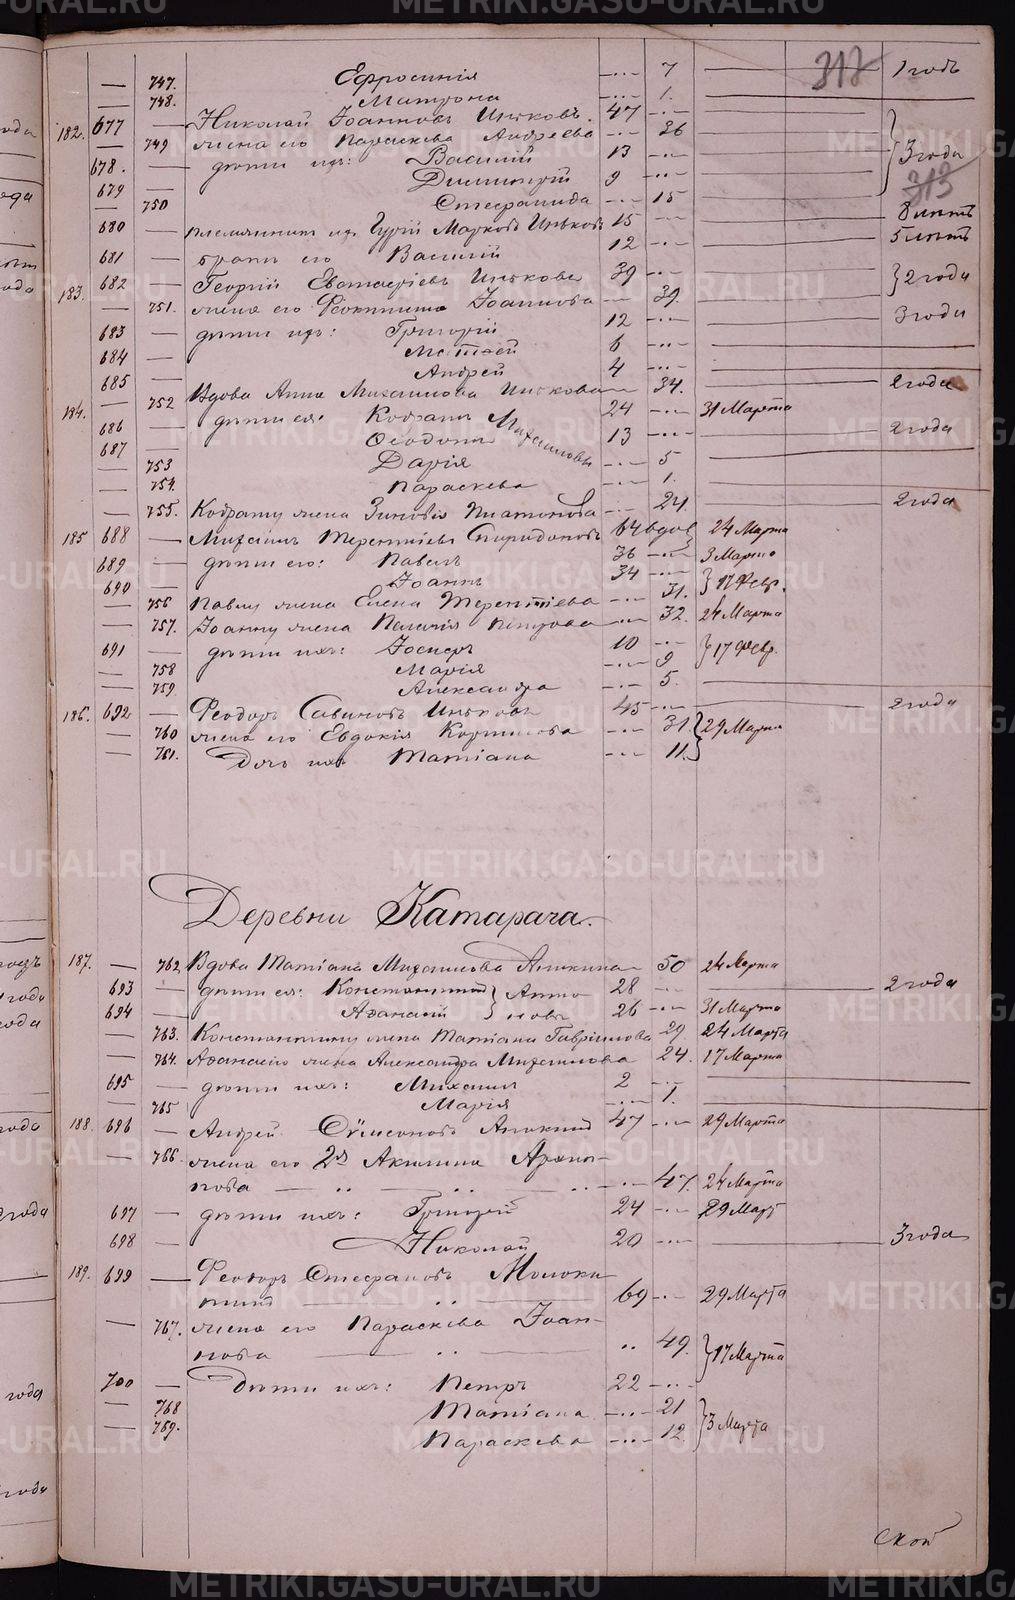 METRIKI.GASO-URAL.RU
317
747. Ефросинія — 7 — 1 годъ
748. Матрона — 1.
182. 677 Николай Іоанновъ Иньковъ. 47
749 жена его Параскева Андреева 36
678. дѣти ихъ: Василій 13 } 3 года
679 Димитрій 9
313
750 Стефанида 15
680 племянникъ его Гурій Марковъ Иньковъ 15 8 лѣтъ
681 братъ его Василій 12 5 лѣтъ
183. 682 Георгій Евстафіевъ Иньковъ 39 } 2 года
751. жена его Феоктиста Іоаннова 39.
683 дѣти ихъ: Григорій 12 3 года
684 Матѳей 6
685 Андрей 4
184. 752 Вдова Анна Михаилова Инькова 34. 2 года
686 дѣти ея: Кодратъ Михаиловы 24 31 Марта
687 Ѳеодотъ 13 2 года
753 Дарія 5
754. Параскева 1.
755. Кодрату жена Зиновія Платонова 24. 2 года
185 688 Михаилъ Терентіевъ Спиридоновъ 64 вдов 24 Марта
689 дѣти его: Павелъ 36 3 Марта
690 Іоаннъ 34 } 17 Февр.
756 Павлу жена Елена Терентіева 31.
757. Іоанну жена Пелагія Петрова 32. 24 Марта
691 дѣти ихъ: Іосифъ 10 } 17 Февр.
758 Марія 9
759 Александра 5.
186. 692 Феодоръ Савиновъ Иньковъ 45 2 года
760 жена его Евдокія Корнилова 31. } 29 Марта
761. Дочь ихъ Татіана 11.
Деревни Катарача.
187. 762 Вдова Татіана Михаилова Аникина 50 24 Марта
693 дѣти ея: Константинъ } Анто- 28 2 года
694 Аѳанасій новы 26 31 Марта
763. Константину жена Татіана Гавріилова 29. 24 Марта
764. Аѳанасію жена Александра Михаилова 24. 17 Марта
695 дѣти ихъ: Михаилъ 2
765 Марія 1.
188. 696 Андрей Сѵмеоновъ Аникинъ 47 29 Марта
766. жена его 2я Акилина Архи-
пова 47. 24 Марта
697 дѣти ихъ: Григорій 24 29 Март
698 Николай 20 3 года
189. 699 Феодоръ Стефановъ Молоки-
тинъ 69 29 Марта
767. жена его Параскева Іоан-
нова 49. } 17 Марта
700 Дѣти ихъ: Петръ 22
768 Татіана 21 } 3 Марта
769. Параскева 12